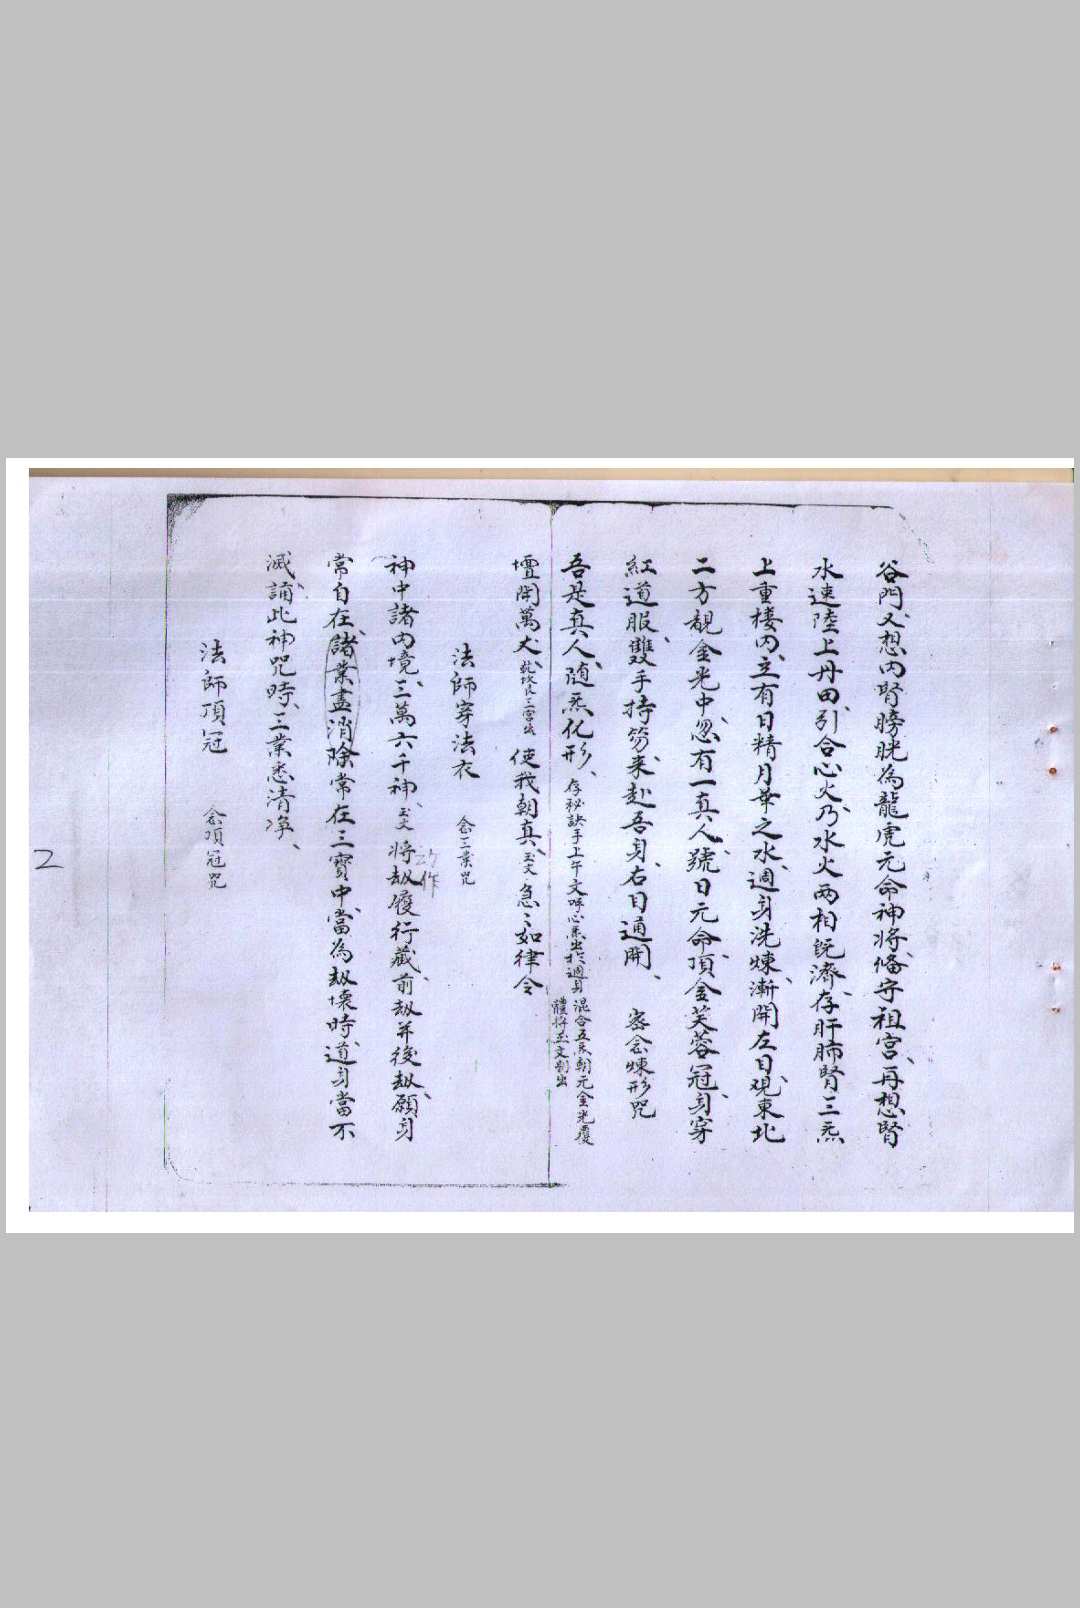 谷門、又想內腎膀胱為龍虎元命神將、俻守祖宮、再想腎
水速陸上丹田、引合心火、乃水火两相既濟、存肝肺腎三炁
上重楼内、立有日精月華之水、週身洗煉、漸開左目、覌東北
二方、覩金光中、忽有一真人、號日元命、頂金芙蓉冠、身穿
紅道服、雙手持笏、来赴吾身、右目通開、 密念煉形咒
吾是真人、随炁化形、 存秘訣手上午文呼心炁出於週身
混合五炁朝元金光覆
體將玉文剔出
壇開萬丈、 使我朝真、玉文 急〻如律令
法師穿法衣 念三業咒
神中諸内境、三萬六千神、玉文 將刼履行藏、前刼并後刼、願身
改作
常自在、諸業盡消除、常在三寳中、當為刼壞時、道身當不
滅、誦此神咒時、三業悉清净、
法師頂冠 念頂冠咒
2